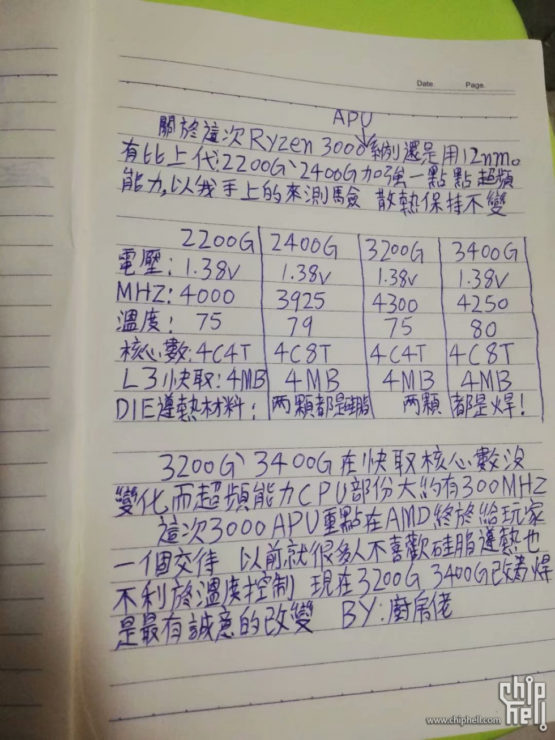 Date. Page.
APU
關於這次Ryzen 3000系列還是用12nm。
有比上代:2200G、2400G加強一點點超頻
能力,以我手上的來測驗 散熱保持不變
2200G 2400G 3200G 3400G
電壓: 1.38v 1.38v 1.38v 1.38v
MHZ: 4000 3925 4300 4250
溫度: 75 79 75 80
核心數: 4C4T 4C8T 4C4T 4C8T
L3快取: 4MB 4MB 4MB 4MB
DIE導熱材料: 兩顆都是硅脂 兩顆都是焊!
3200G、3400G在快取核心數沒
變化而超頻能力CPU部份大約有300MHZ
這次3000APU重點在AMD終於給玩家
一個交待 以前就很多人不喜歡硅脂導熱也
不利於溫度控制 現在3200G 3400G改為焊
是最有誠意的改變 BY:廚房佬
chip
hell
www.chiphell.com